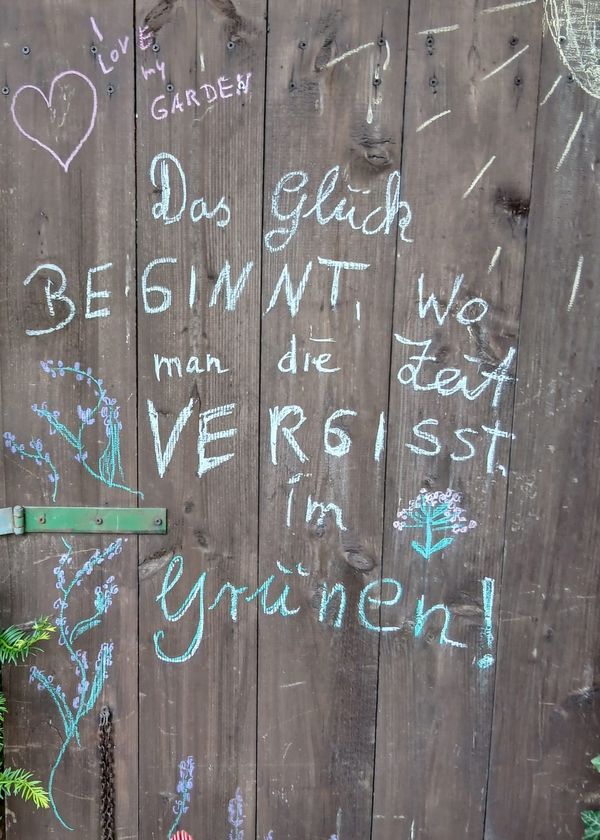 I
LOVE
my
GARDEN
Das Glück
BEGINNT, wo
man die Zeit
VERGISST.
im
Grünen!